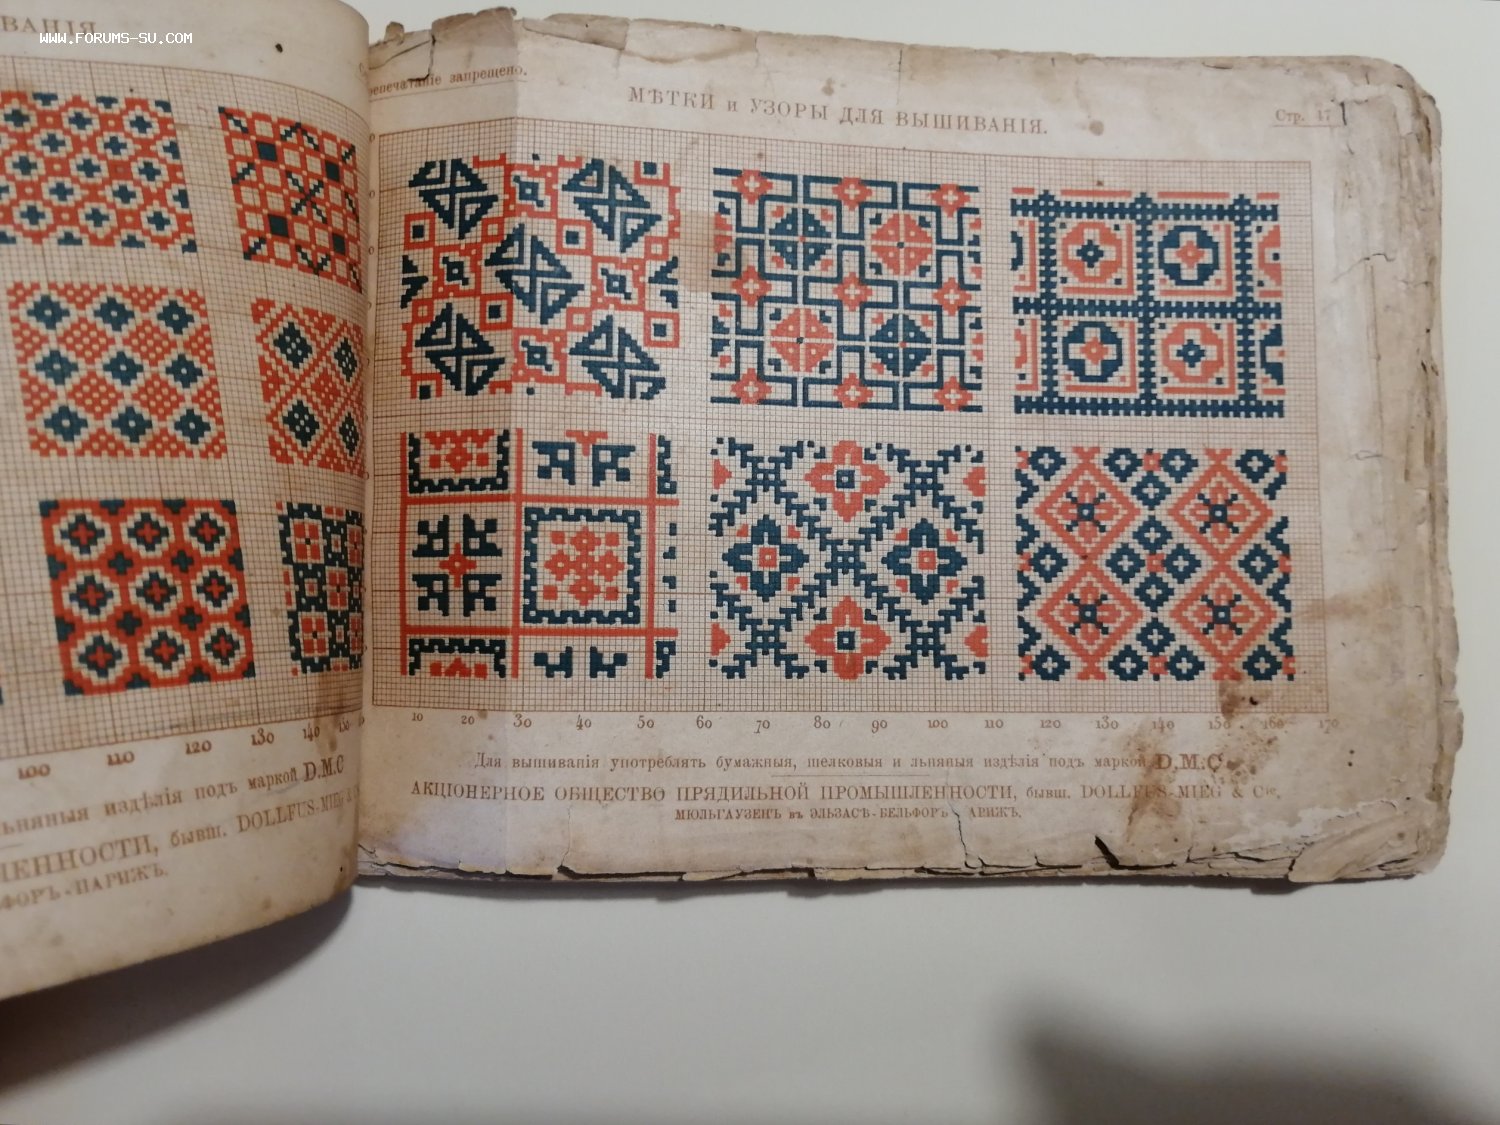 WWW.FORUMS-SU.COM
ВАНІЯ
100 110 120 130 140 150
льняныя издѣлія подъ маркой D.M.C
ЛЕННОСТИ, бывш. DOLLFUS-MIEG &
ФОРЪ-ПАРИЖЪ.
репечатаніе запрещено.
МѢТКИ и УЗОРЫ ДЛЯ ВЫШИВАНІЯ.
Стр. 47
10 20 30 40 50 60 70 80 90 100 110 120 130 140 150 160 170
Для вышиванія употреблять бумажныя, шелковыя и льняныя издѣлія подъ маркой D.M.C
АКЦІОНЕРНОЕ ОБЩЕСТВО ПРЯДИЛЬНОЙ ПРОМЫШЛЕННОСТИ, бывш. DOLLFUS-MIEG & Cie,
МЮЛЬГАУЗЕНЪ въ ЭЛЬЗАСѢ-БЕЛЬФОРЪ АРИЖЪ.